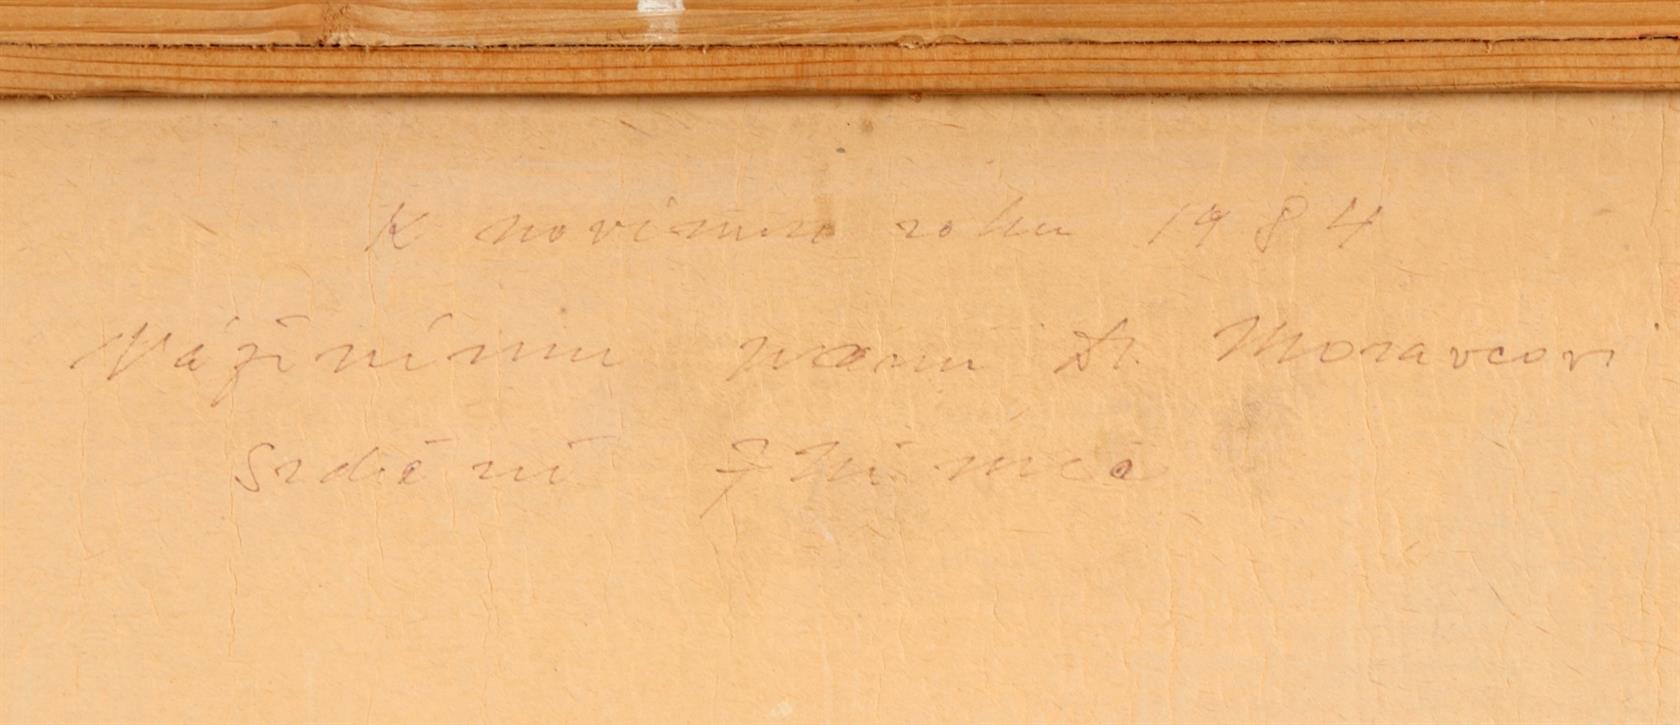 K novému roku 1984
Váženému panu Dr. Moravcovi
Srdečně